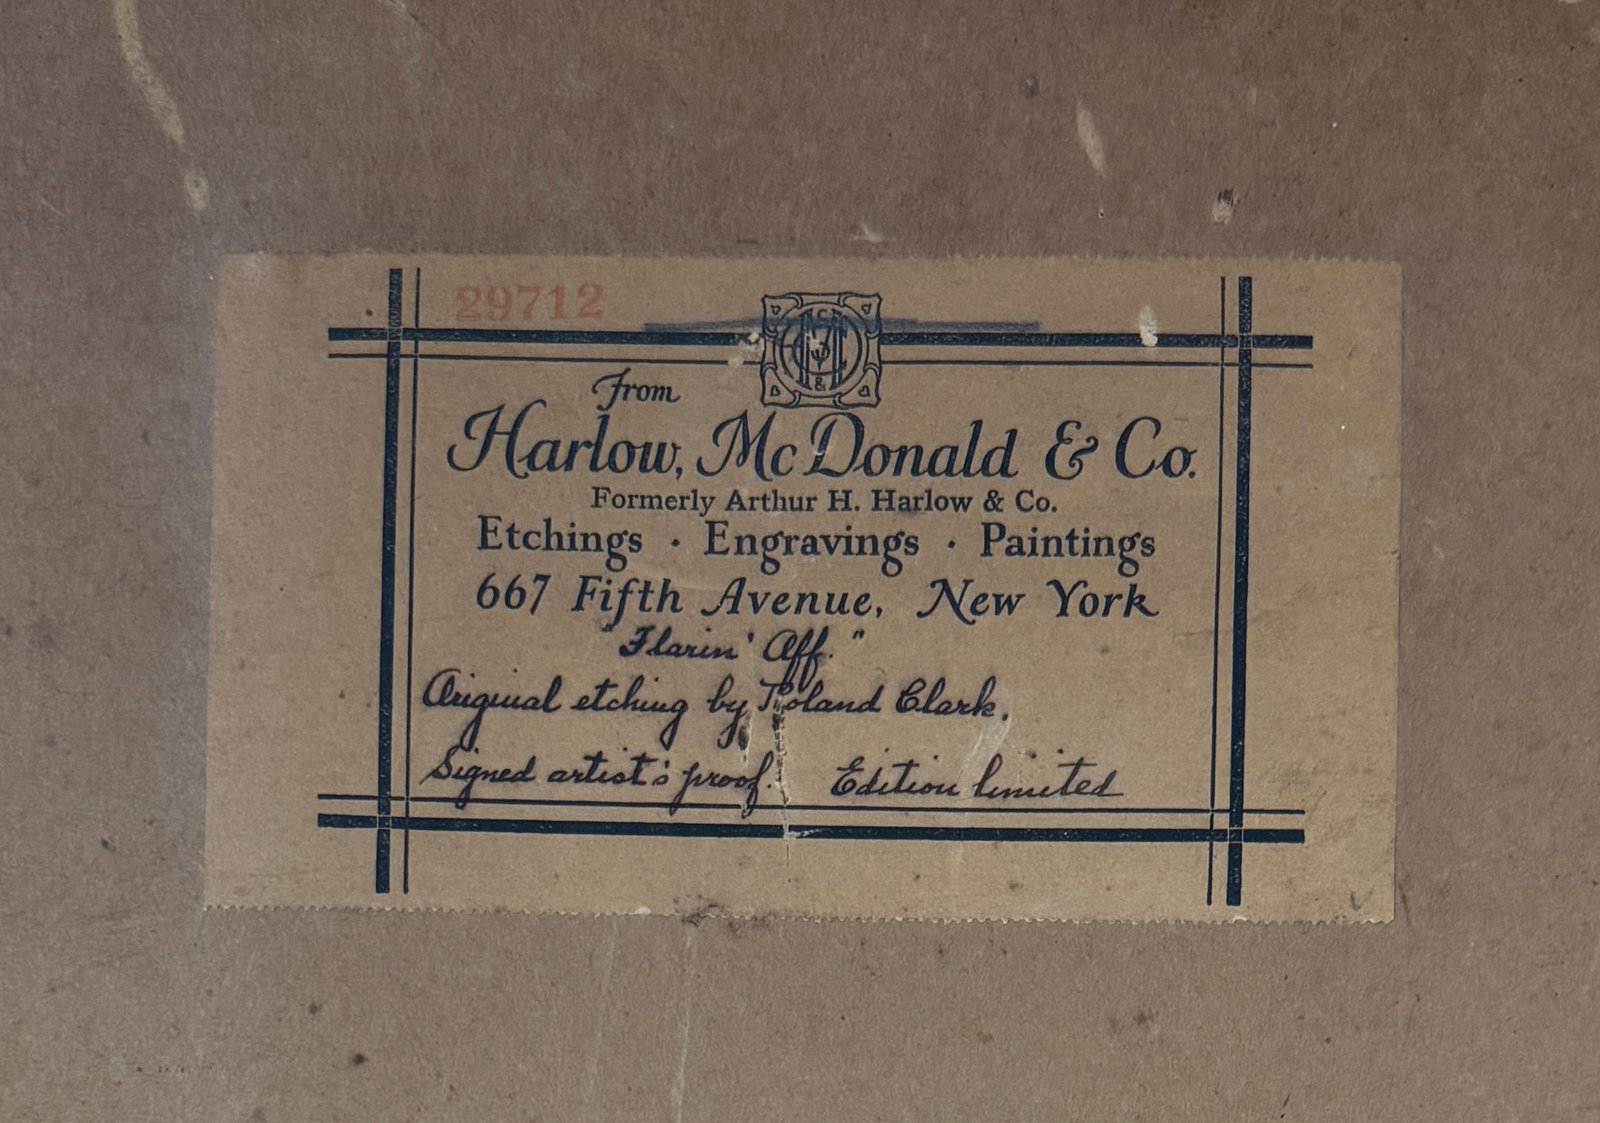 29712
From
Harlow, McDonald & Co.
Formerly Arthur H. Harlow & Co.
Etchings · Engravings · Paintings
667 Fifth Avenue, New York
"Flarin' Off."
Original etching by Roland Clark.
Signed artist's proof. Edition limited